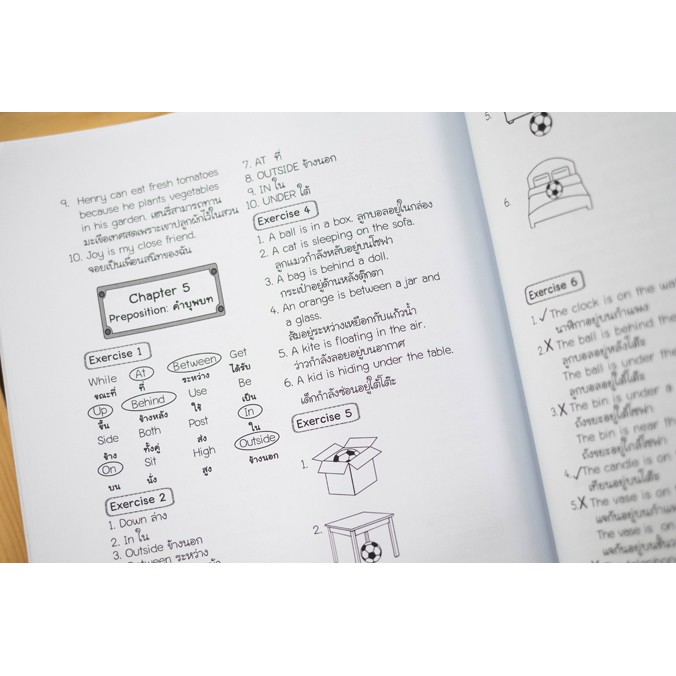 9. Henry can eat fresh tomatoes
because he plants vegetables
in his garden. เฮนรี่สามารถทาน
มะเขือเทศสดเพราะเขาปลูกผักไว้ในสวน
10. Joy is my close friend.
จอยเป็นเพื่อนสนิทของฉัน
Chapter 5
Preposition: คำบุพบท
Exercise 1
While At Between Get
ขณะที่ ที่ ระหว่าง ได้รับ
Up Behind Use Be
ขึ้น ข้างหลัง ใช้ เป็น
Side Both Post In
ข้าง ทั้งคู่ ส่ง ใน
On Sit High Outside
บน นั่ง สูง ข้างนอก
Exercise 2
1. Down ล่าง
2. In ใน
3. Outside ข้างนอก
Between ระหว่าง
7. AT ที่
8. OUTSIDE ข้างนอก
9. IN ใน
10. UNDER ใต้
Exercise 4
1. A ball is in a box. ลูกบอลอยู่ในกล่อง
2. A cat is sleeping on the sofa.
ลูกแมวกำลังหลับอยู่บนโซฟา
3. A bag is behind a doll.
กระเป๋าอยู่ด้านหลังตุ๊กตา
4. An orange is between a jar and
a glass.
ส้มอยู่ระหว่างเหยือกกับแก้วน้ำ
5. A kite is floating in the air.
ว่าวกำลังลอยอยู่บนอากาศ
6. A kid is hiding under the table.
เด็กกำลังซ่อนอยู่ใต้โต๊ะ
Exercise 5
1.
2.
5.
6.
Exercise 6
1. ✓ The clock is on the
นาฬิกาอยู่บนกำแพง
2. X The ball is behind the
ลูกบอลอยู่หลังโต๊ะ
The ball is under the
ลูกบอลอยู่ใต้โต๊ะ
3. X The bin is under a
ถังขยะอยู่ใต้โซฟา
The bin is near the
ถังขยะอยู่ใกล้โซฟา
4. ✓ The candle is on
เทียนอยู่บนโต๊ะ
5. X The vase is on
แจกันอยู่บน
The vase is on
แจกันอยู่บน